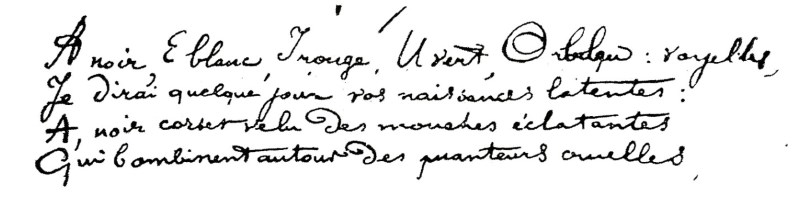 A noir, E blanc, I rouge, U vert, O bleu : voyelles,
Je dirai quelque jour vos naissances latentes :
A, noir corset velu des mouches éclatantes
Qui bombinent autour des puanteurs cruelles,